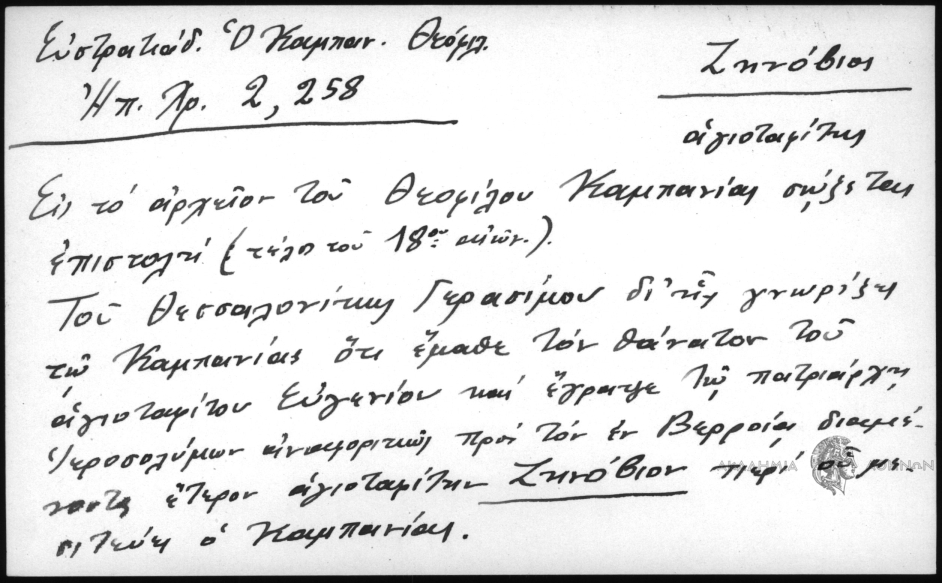 Εὐστρατιάδ. Ὁ Καμπαν. Θεόφιλ.
Ἠπ. Χρ. 2, 258
Ζηνόβιος
ἁγιοταφίτης
Εἰς τό ἀρχεῖον τοῦ Θεοφίλου Καμπανίας σῴζεται
ἐπιστολή (τέλη τοῦ 18ου αἰῶν.).
Τοῦ Θεσσαλονίκης Γερασίμου δι' ἧς γνωρίζει
τῷ Καμπανίας ὅτι ἔμαθε τόν θάνατον τοῦ
ἁγιοταφίτου Εὐγενίου καί ἔγραψε τῷ πατριάρχῃ
Ἱεροσολύμων ἀναφορικῶς πρός τόν ἐν Βερροίᾳ διαμέ-
νοντα ἕτερον ἁγιοταφίτην Ζηνόβιον περί οὗ με-
σιτεύει ὁ Καμπανίας.
ΑΚΑΔΗΜΙΑ ΑΘΗΝΩΝ